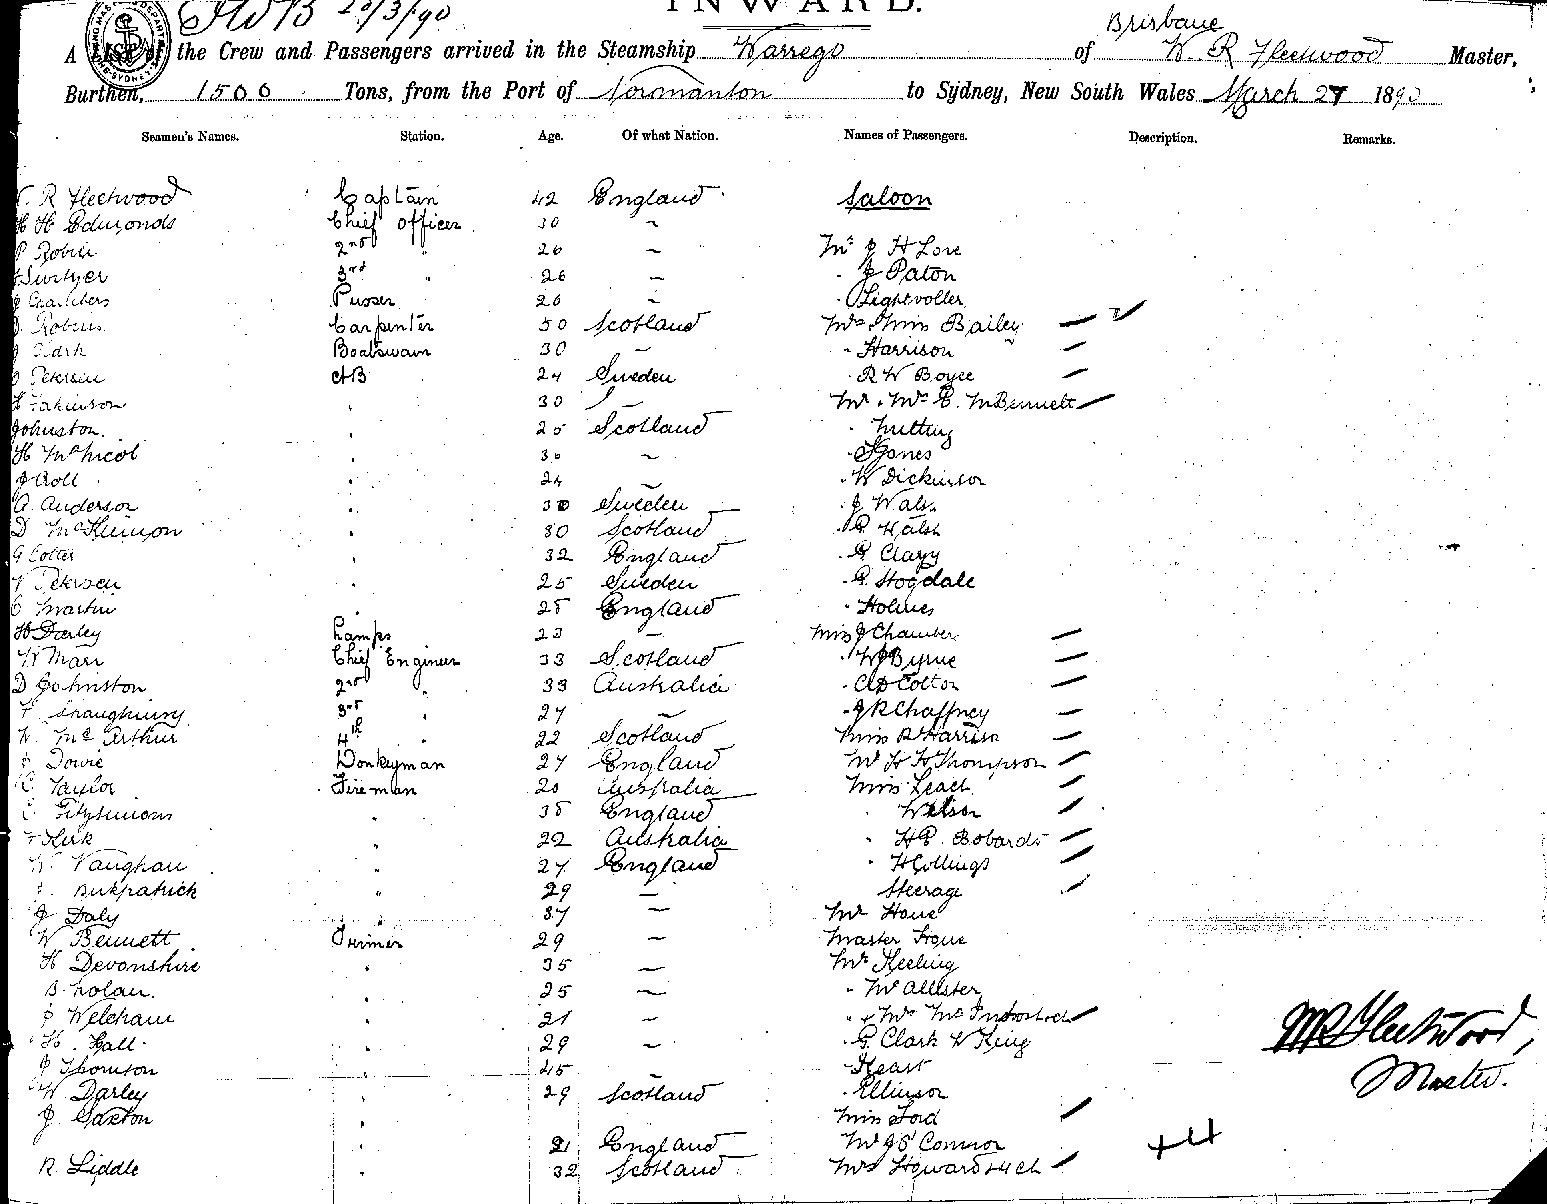 INWARD.
Brisbane
A LIST of the Crew and Passengers arrived in the Steamship Warrego of W. R Fleetwood Master,
Burthen, 1500 Tons, from the Port of Normanton to Sydney, New South Wales March 27 1890
Seamen's Names. Station. Age. Of what Nation. Names of Passengers. Description. Remarks.
R Fleetwood Captain 42 England Saloon
H H Edmonds Chief Officer 30 ~
P 2nd " 26 ~ Mr J H Love
3rd " 26 ~ " J Paton
J Chambers Pusser 26 ~ " Lightvoller
Carpenter 50 Scotland Mrs Miss Bailey
Boatswain 30 ~ " Harrison
Petersen AB 24 Sweden " R W Boyce
" 30 Mr & Mrs E. McBennett
Johnston. " 25 Scotland " Nutting
H McNicol " 30 ~ " Jones
J Roll " 24 ~ " W Dickinson
A. Anderson " 30 Sweden " J Walsh
D McKinnon " 30 Scotland " R Walsh
G Cotter " 32 England " R Clary
Petersen " 25 Sweden " R. Stogdale
C Martin " 25 England " Holmes
H Darley Lamps 23 ~ Miss J Chamber
W Marr Chief Engineer 33 Scotland " W J Byrne
D Johnston 2nd " 33 Australia " A D Cotton
Shaughnessy 3rd " 27 ~ " J R Chaffney
W. McArthur 4th " 22 Scotland Miss R Harris
Dowie Donkeyman 27 England Mr H H Thompson
C Taylor Fireman 20 Australia Miss Leach
Fitzsimons " 35 England " Watson
Kirk " 22 Australia " H E. Bobards
W. Vaughan " 27 England " H Collings
Birkpatrick " 29 ~ Steerage
J Daly " 37 ~ Mr Hone
W Bennett Trimer 29 ~ Master Hone
H Devonshire " 35 ~ Mr Keeling
B. Nolan. " 25 ~ " McAllister
J Welcham " 21 ~ " & Mrs
H. Hall " 29 ~ " G. Clark W King
J Thomson " 45 ~ " Heart
W Darley " 29 Scotland " Ellinson
J. Saxton " Miss Ford
21 England Mr J O'Connor
R. Liddle " 32 Scotland Mrs Howard & 4 ch
W R Fleetwood,
Master.
44